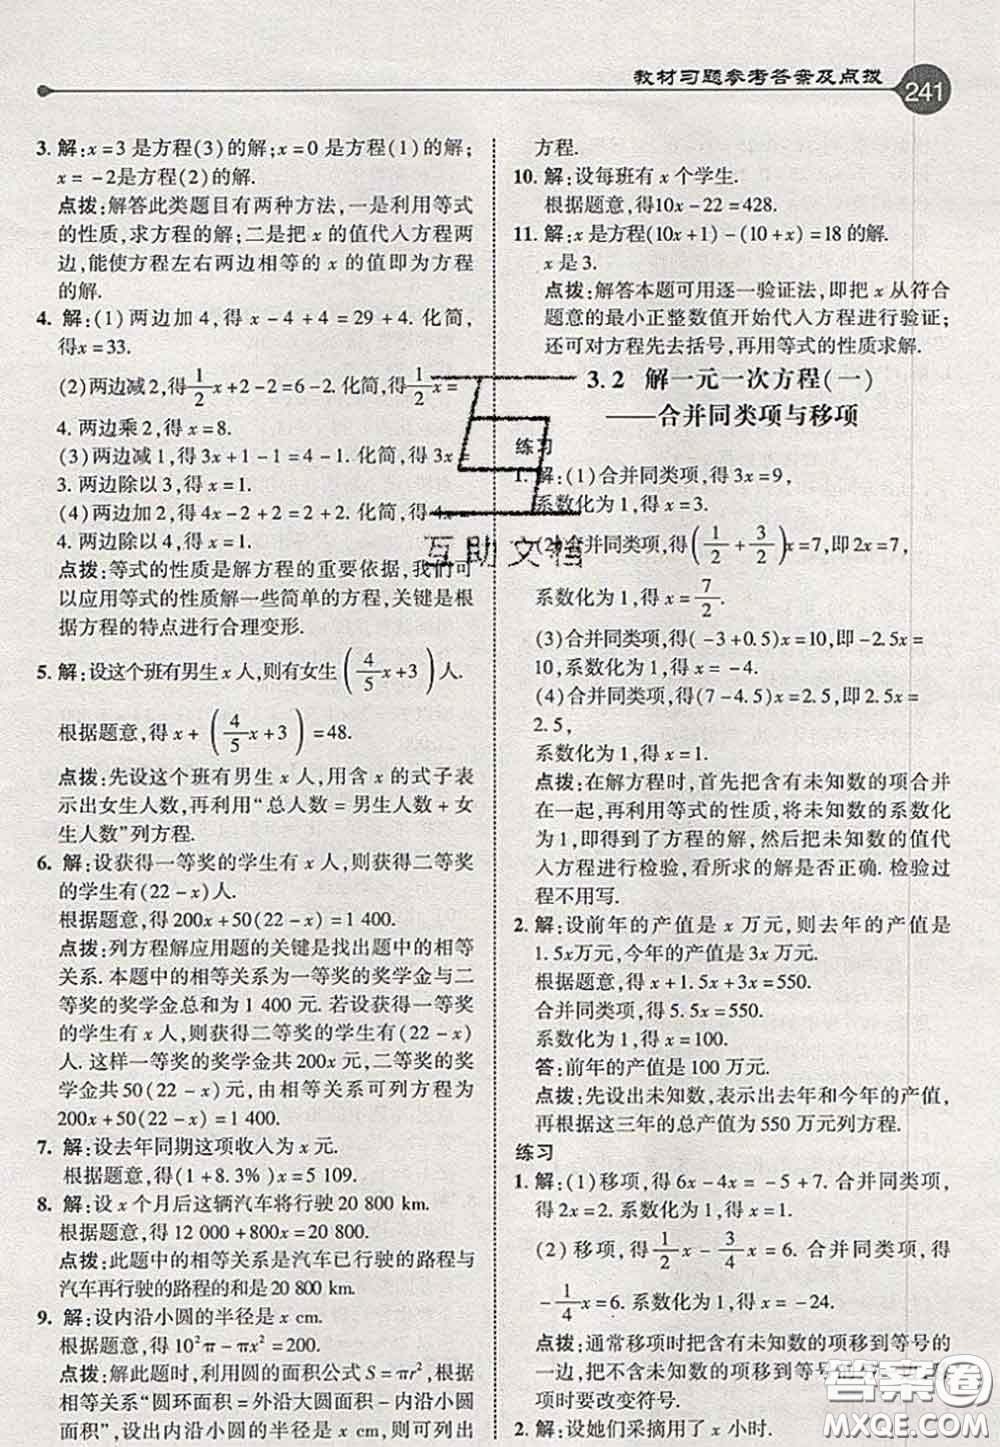 教材习题参考答案及点拨
241
3. 解:x=3 是方程(3)的解;x=0 是方程(1)的解;
x= -2是方程(2)的解.
点拨:解答此类题目有两种方法,一是利用等式
的性质,求方程的解;二是把 x 的值代入方程两
边,能使方程左右两边相等的 x 的值即为方程
的解.
4. 解:(1) 两边加 4,得 x-4+4=29+4. 化简,
得x=33.
(2)两边减2,得1/2x+2-2=6-2. 化简,得1/2x=
4. 两边乘 2,得 x=8.
(3)两边减 1,得 3x+1-1=4-1. 化简,得 3x=
3. 两边除以 3,得 x=1.
(4)两边加 2,得 4x-2+2=2+2. 化简,得 4x=
4. 两边除以 4,得 x=1.
点拨:等式的性质是解方程的重要依据,我们可
以应用等式的性质解一些简单的方程,关键是根
据方程的特点进行合理变形.
5. 解:设这个班有男生 x 人,则有女生(4/5x+3)人.
根据题意,得 x+(4/5x+3)=48.
点拨:先设这个班有男生 x 人,用含 x 的式子表
示出女生人数,再利用“总人数=男生人数+女
生人数”列方程.
6. 解:设获得一等奖的学生有 x 人,则获得二等奖
的学生有(22-x)人.
根据题意,得 200x+50(22-x)=1 400.
点拨:列方程解应用题的关键是找出题中的相等
关系. 本题中的相等关系为一等奖的奖学金与二
等奖的奖学金总和为 1 400 元. 若设获得一等奖
的学生有 x 人,则获得二等奖的学生有(22-x)
人. 这样一等奖的奖学金共 200x 元,二等奖的奖
学金共 50(22-x)元,由相等关系可列方程
200x+50(22-x)=1 400.
7. 解:设去年同期这项收入为 x 元.
根据题意,得(1+8.3%)x=5 109.
8. 解:设 x 个月后这辆汽车将行驶 20 800 km.
根据题意,得 12 000+800x=20 800.
点拨:此题中的相等关系是汽车已行驶的路程与
汽车再行驶的路程的和是 20 800 km.
9. 解:设内沿小圆的半径是 x cm.
根据题意,得 10²π-πx²=200.
点拨:解此题时,利用圆的面积公式 S=πr²,根据
相等关系“圆环面积=外沿大圆面积-内沿小圆
面积”,设出内沿小圆的半径是 x cm,则可列出
方程.
10. 解:设每班有 x 个学生.
根据题意,得10x-22=428.
11. 解:x 是方程(10x+1)-(10+x)=18 的解.
x 是 3.
点拨:解答本题可用逐一验证法,即把 x 从符合
题意的最小正整数值开始代入方程进行验证;
还可对方程先去括号,再用等式的性质求解.
3.2 解一元一次方程(一)
——合并同类项与移项
练习
1. 解:(1)合并同类项,得 3x=9,
系数化为 1,得 x=3.
(2)合并同类项,得(1/2+3/2)x=7,即 2x=7,
系数化为 1,得 x=7/2.
(3)合并同类项,得(-3+0.5)x=10,即-2.5x=
10,系数化为 1,得 x=-4.
(4)合并同类项,得(7-4.5)x=2.5,即 2.5x=
2.5,
系数化为 1,得 x=1.
点拨:在解方程时,首先把含有未知数的项合并
在一起,再利用等式的性质,将未知数的系数化
为 1,即得到了方程的解,然后把未知数的值代
入方程进行检验,看所求的解是否正确. 检验过
程不用写.
2. 解:设前年的产值是 x 万元,则去年的产值是
1.5x万元,今年的产值是 3x 万元.
根据题意,得 x+1.5x+3x=550.
合并同类项,得 5.5x=550.
系数化为 1,得 x=100.
答:前年的产值是 100 万元.
点拨:先设出未知数,表示出去年、今年的产值,
再根据这三年的总产值为 550 万元列方程.
练习
1. 解:(1)移项,得 6x-4x=-5+7. 合并同类项,
得 2x=2. 系数化为 1,得 x=1.
(2)移项,得1/2x-3/4x=6. 合并同类项,得
-1/4x=6. 系数化为 1,得 x=-24.
点拨:通常移项时把含有未知数的项移到等号的
一边,把不含未知数的项移到等号的
项时要改变符号.
2. 解:设她们采摘用了 x 小时.
互助文档
答案圈
MXQE.COM